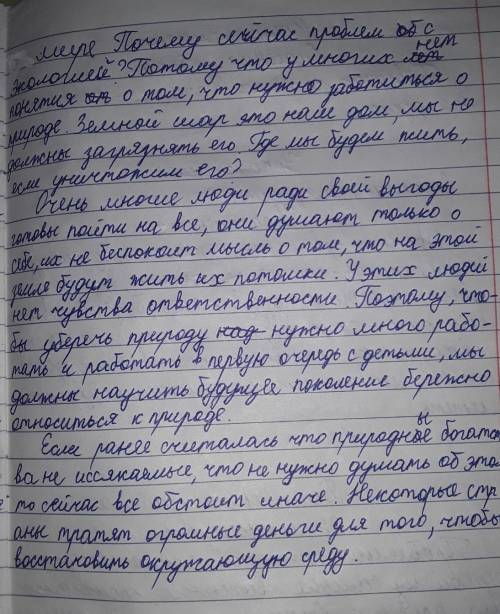 мире Почему сейчас проблем с
экологией? Потому что у многих нет
понятия о том, что нужно заботиться о
природе. Земной шар это наш дом, мы не
должны загрязнять его. Где мы будем жить,
если уничтожим его?
Очень многие люди ради своей выгоды
готовы пойти на все, они думают только о
себе, их не беспокоит мысль о том, что на этой
земле будут жить их потомки. У этих людей
нет чувства ответственности. Поэтому, что-
бы уберечь природу нужно много рабо-
тать и работать в первую очередь с детьми, мы
должны научить будущее поколение бережно
относиться к природе.
Если ранее считалась что природные богатст
ва не иссякаемые, что не нужно думать об этом
то сейчас все обстоит иначе. Некоторые стр
аны тратят огромные деньги для того, чтобы
восстановить окружающую среду.